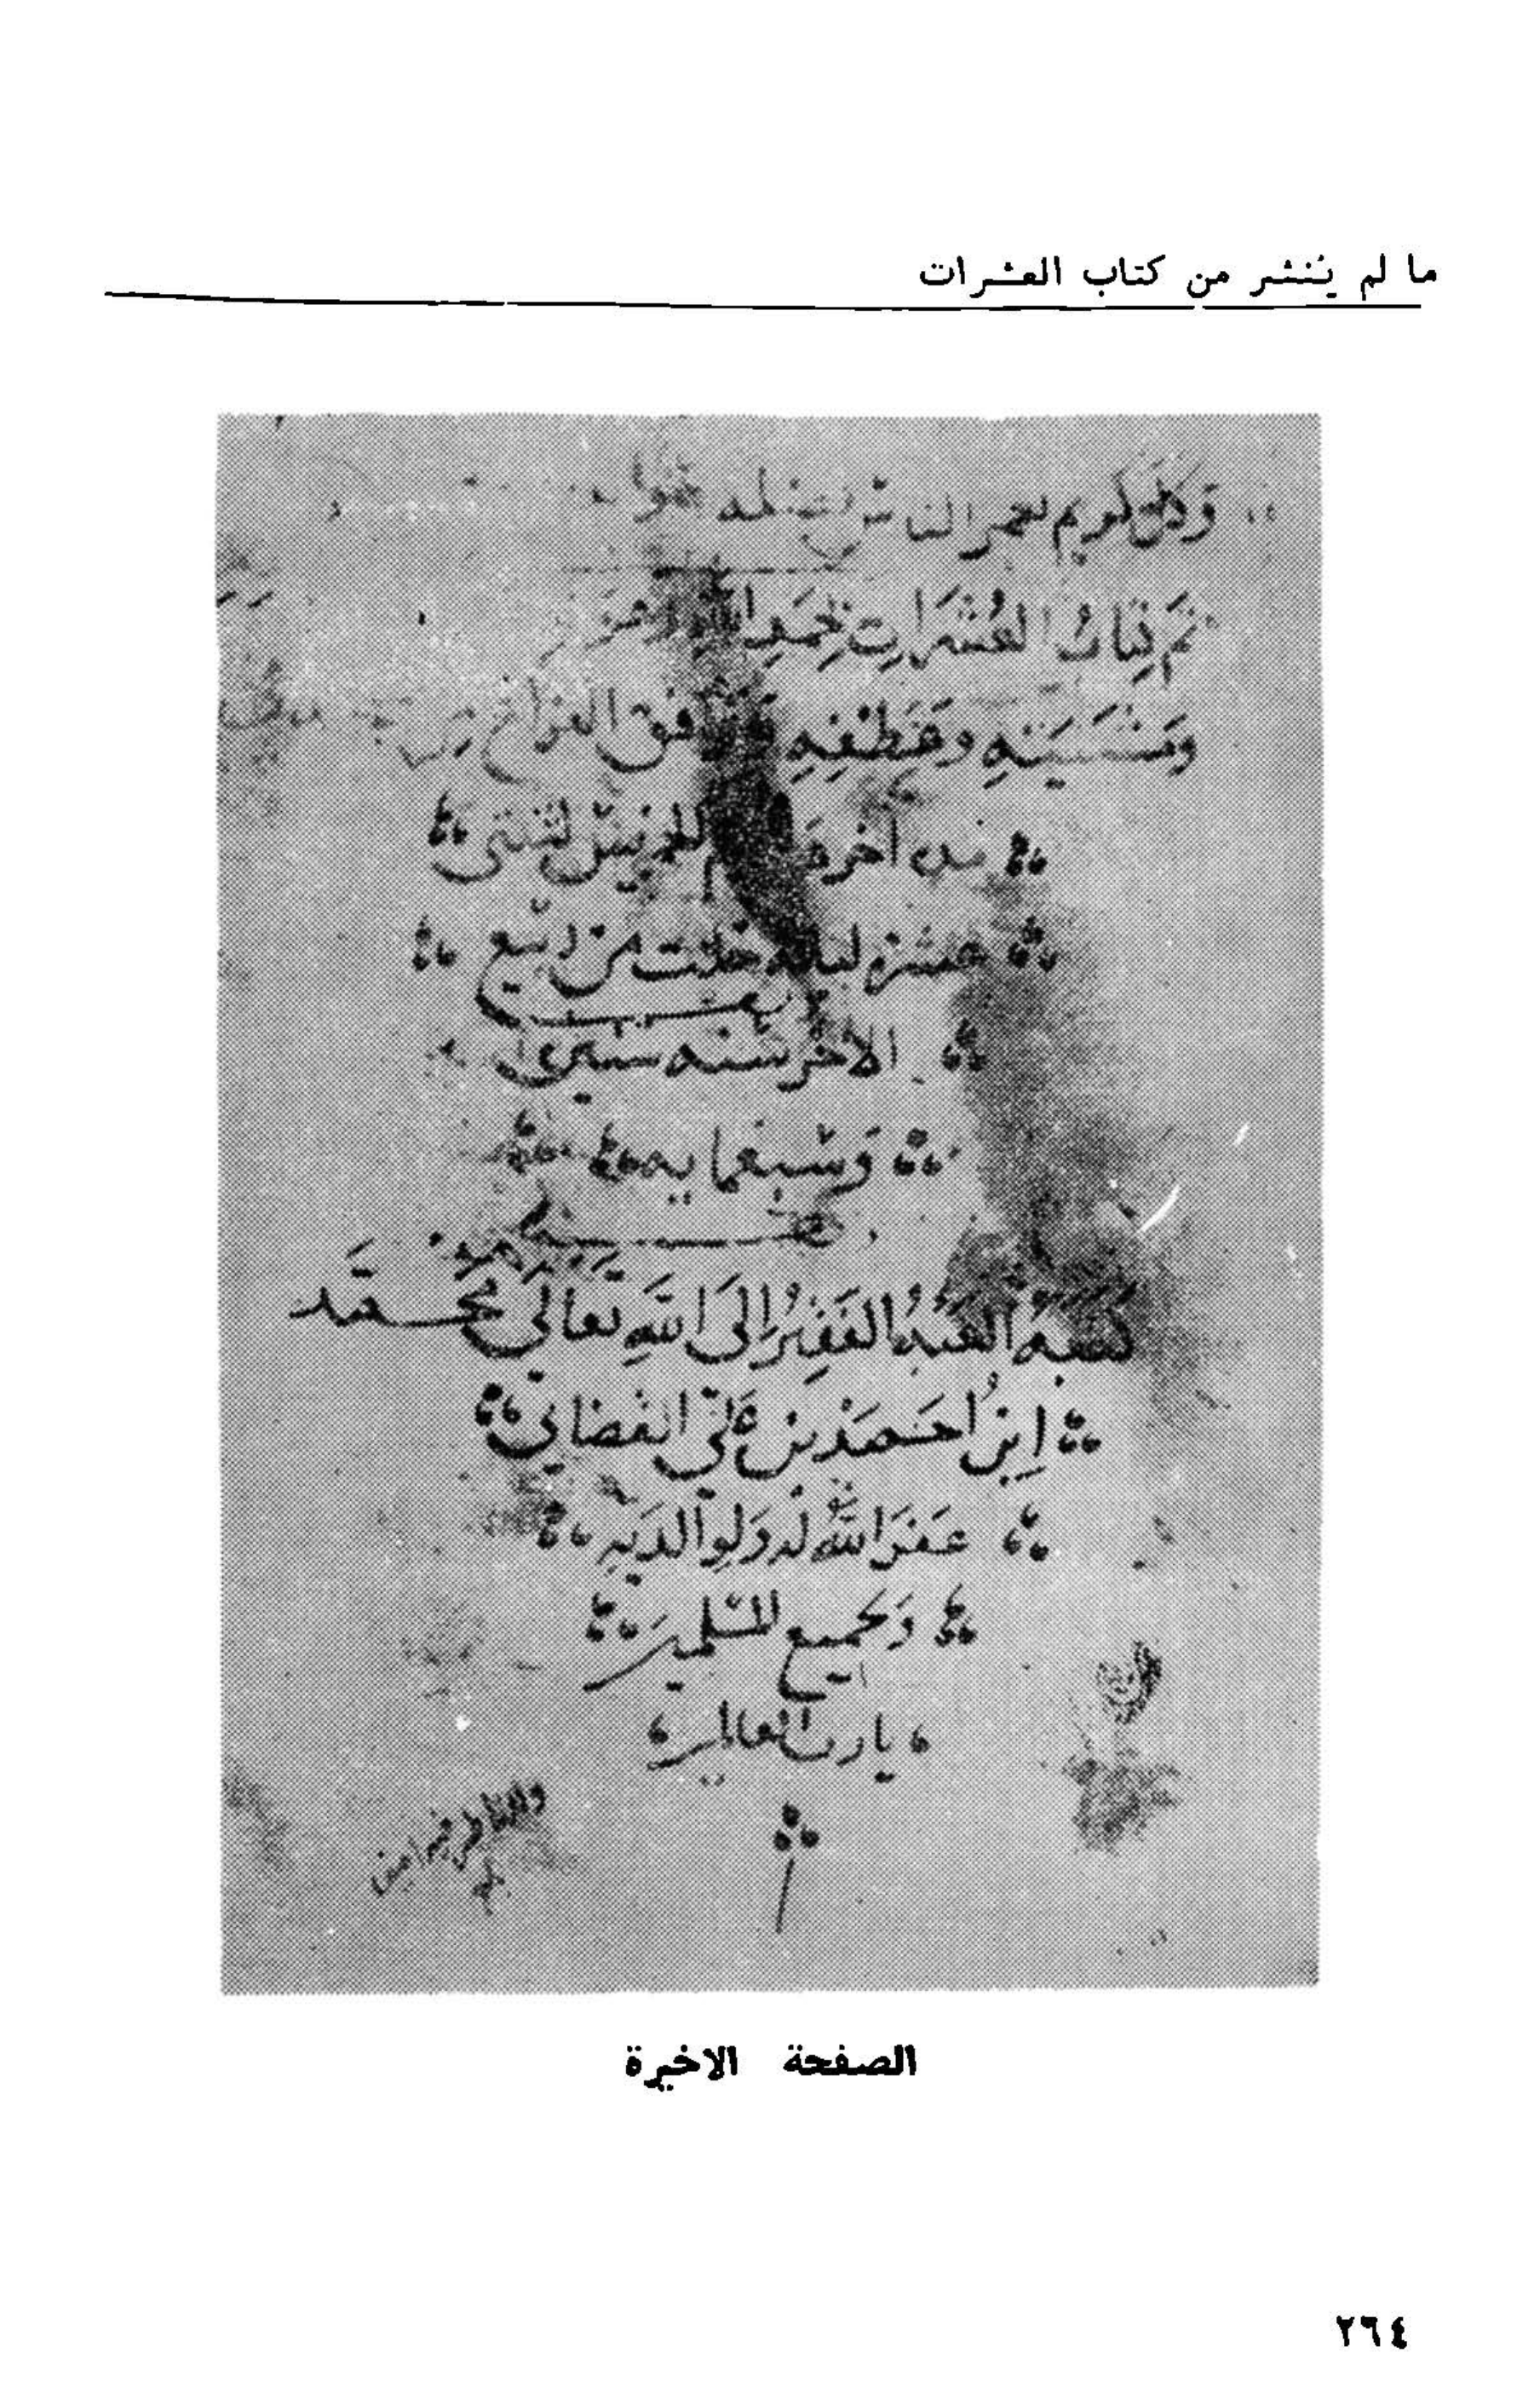 ما لم يُنشر من كتاب العشرات
الناس
تم كتاب العشرات بحمد الله
ومشيته وفق الفراغ من
من آخر للخميس لثنتى
عشره ليله خلت من ربيع
الاخر سنه ستين
وَسبعمايه
كتبهُ العَبدُ الفَقِيرُ إلَى اللهِ تَعالى محمَّد
اِبنُ احمَد بن عَلي القضاي
غفرَ اللهُ له وَلوالدَيهِ
وَلجميع المسلمينَ
يا رب العالمين
والناظر فيه امين
الصفحة الاخيرة
٢٦٤